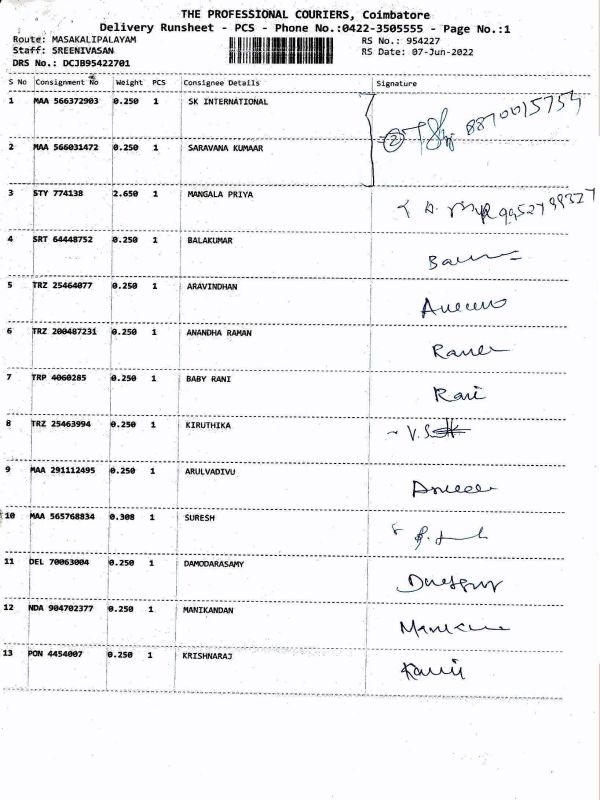 THE PROFESSIONAL COURIERS, Coimbatore
Delivery Runsheet - PCS - Phone No.:0422-3505555 - Page No.:1
Route: MASAKALIPALAYAM
RS No.: 954227
Staff: SREENIVASAN
RS Date: 07-Jun-2022
DRS No.: DCJB95422701
S No Consignment No Weight PCS Consignee Details Signature
1 MAA 566372903 0.250 1 SK INTERNATIONAL
② 8870015754
2 MAA 566031472 0.250 1 SARAVANA KUMAAR
3 STY 774138 2.650 1 MANGALA PRIYA 9952799327
4 SRT 64448752 0.250 1 BALAKUMAR
5 TRZ 25464077 0.250 1 ARAVINDHAN
6 TRZ 200487231 0.250 1 ANANDHA RAMAN
7 TRP 4060285 0.250 1 BABY RANI Rani
8 TRZ 25463994 0.250 1 KIRUTHIKA
9 MAA 291112495 0.250 1 ARULVADIVU
10 MAA 565768834 0.308 1 SURESH
11 DEL 70063004 0.250 1 DAMODARASAMY
12 NDA 904702377 0.250 1 MANIKANDAN
13 PON 4454007 0.250 1 KRISHNARAJ